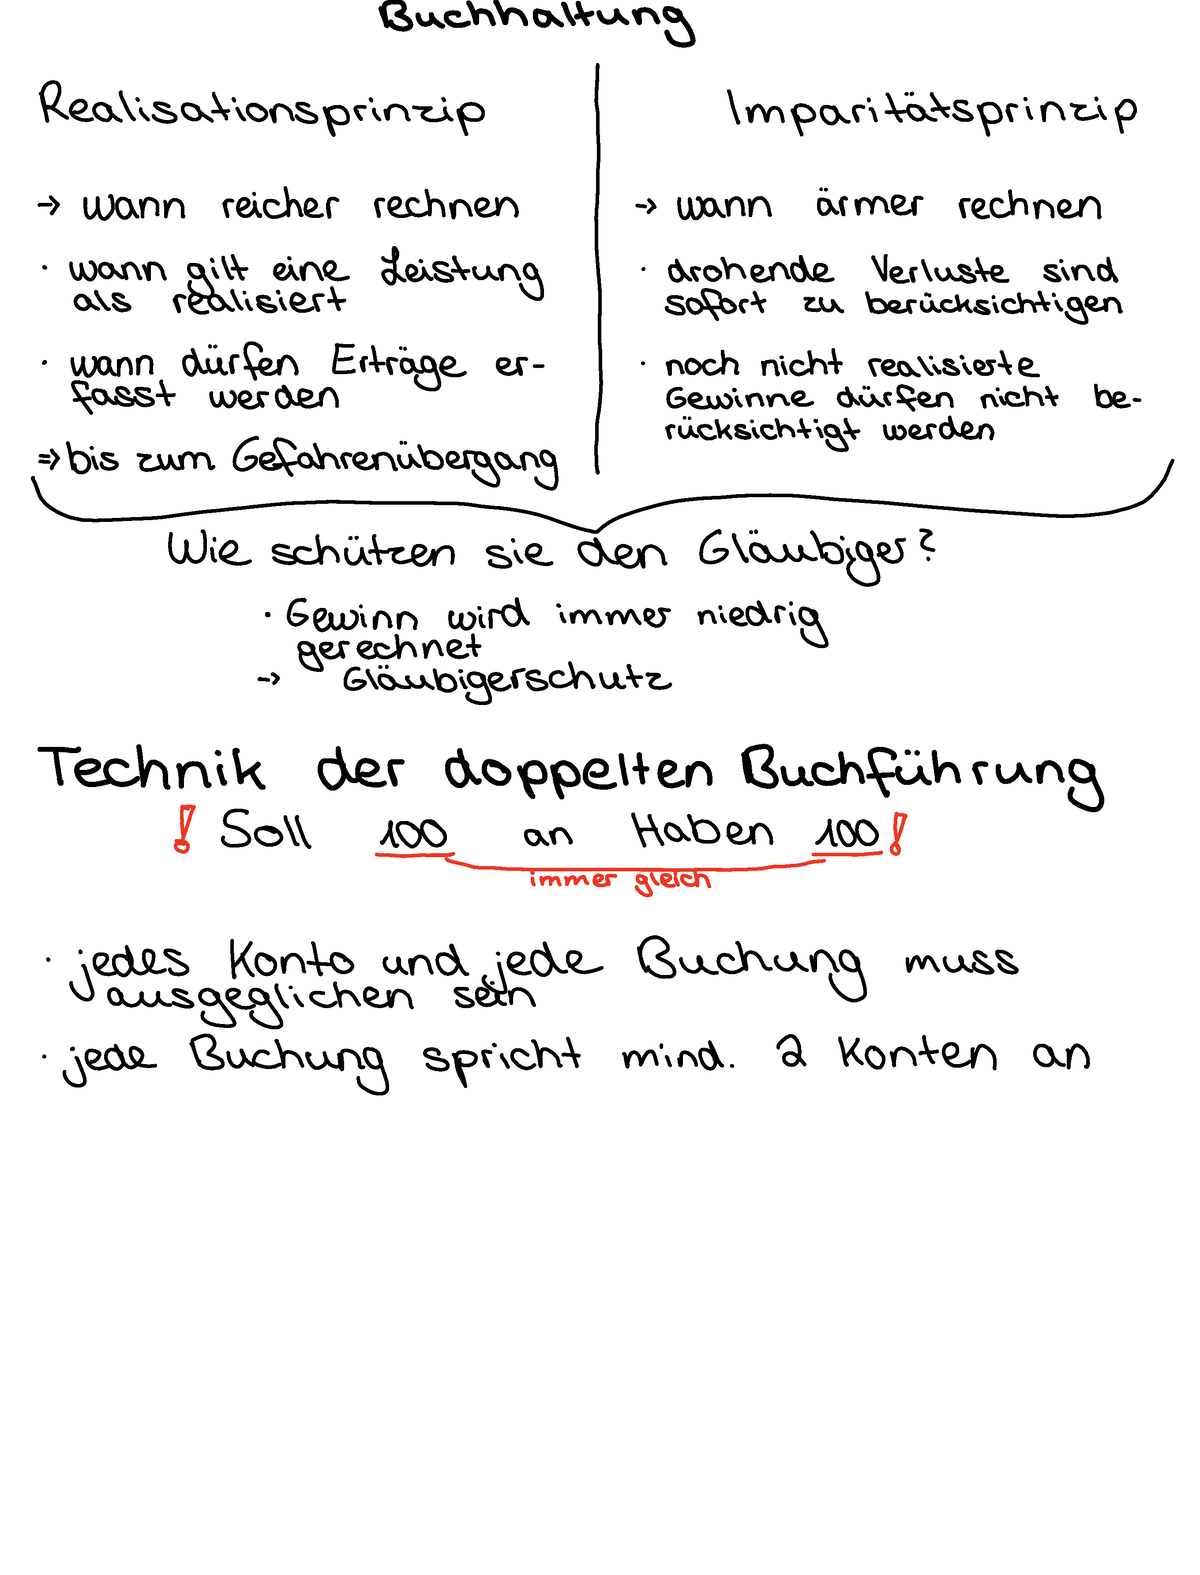 Buchhaltung
Realisationsprinzip
→ wann reicher rechnen
· wann gilt eine Leistung
als realisiert
· wann dürfen Erträge er-
fasst werden
⇒ bis zum Gefahrenübergang
Imparitätsprinzip
→ wann ärmer rechnen
· drohende Verluste sind
sofort zu berücksichtigen
· noch nicht realisierte
Gewinne dürfen nicht be-
rücksichtigt werden
Wie schützen sie den Gläubiger?
· Gewinn wird immer niedrig
gerechnet
→ Gläubigerschutz
Technik der doppelten Buchführung
! Soll 100 an Haben 100!
immer gleich
· jedes Konto und jede Buchung muss
ausgeglichen sein
· jede Buchung spricht mind. 2 Konten an